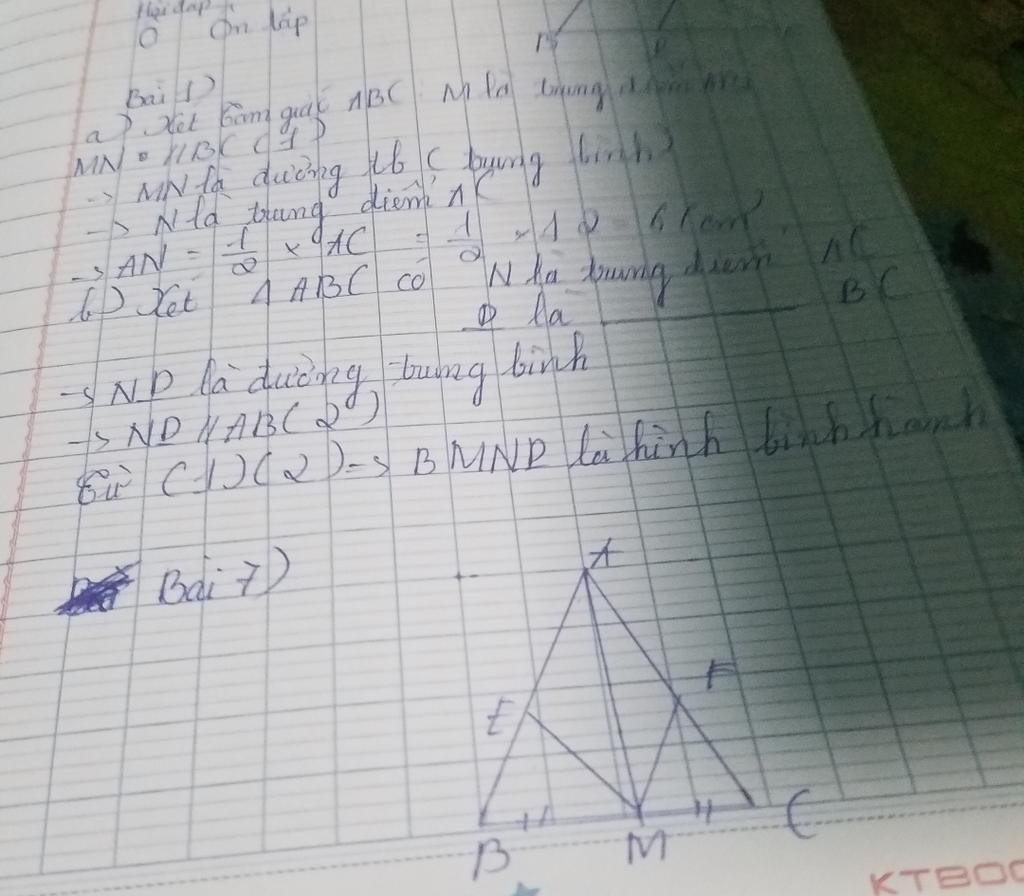 Hỏi đáp
O Ôn tập
Bài 1)
a) Xét tam giác ABC M là trung điểm
MN // BC (1)
-> MN là đường tb (trung bình)
-> N là trung điểm AC
-> AN = 1/2 × AC = 1/2 × 12 = 6 (cm)
b) Xét Δ ABC có N là trung điểm AC
D là ——— BC
-> ND là đường trung bình
-> ND // AB (2)
Từ (1)(2) => BMND là hình bình hành
Bài 7)
A
F
E
B M C
KTBOO